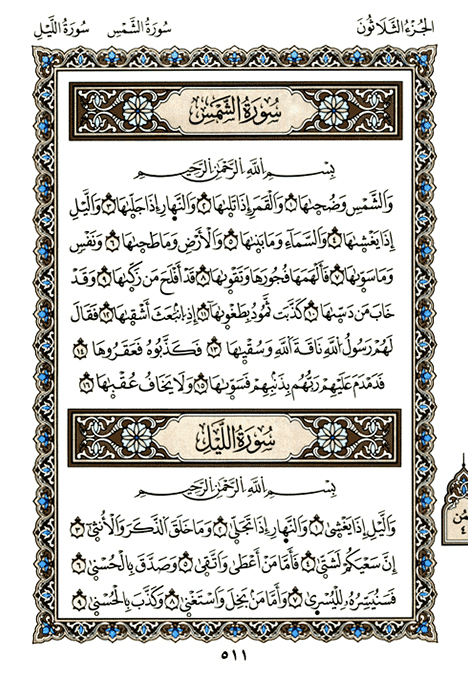 الجُزْءُ الثَّلَاثُونَ سُورَةُ الشَّمْسِ سُورَةُ اللَّيْلِ
سُورَةُ الشَّمْسِ
بِسْمِ اللَّهِ الرَّحْمَٰنِ الرَّحِيمِ
وَالشَّمْسِ وَضُحَىٰهَا ١ وَالْقَمَرِ إِذَا تَلَىٰهَا ٢ وَالنَّهَارِ إِذَا جَلَّىٰهَا ٣ وَاللَّيْلِ
إِذَا يَغْشَىٰهَا ٤ وَالسَّمَاءِ وَمَا بَنَىٰهَا ٥ وَالْأَرْضِ وَمَا طَحَىٰهَا ٦ وَنَفْسٍ
وَمَا سَوَّىٰهَا ٧ فَأَلْهَمَهَا فُجُورَهَا وَتَقْوَىٰهَا ٨ قَدْ أَفْلَحَ مَن زَكَّىٰهَا ٩ وَقَدْ
خَابَ مَن دَسَّىٰهَا ١٠ كَذَّبَتْ ثَمُودُ بِطَغْوَىٰهَا ١١ إِذِ انۢبَعَثَ أَشْقَىٰهَا ١٢ فَقَالَ
لَهُمْ رَسُولُ اللَّهِ نَاقَةَ اللَّهِ وَسُقْيَٰهَا ١٣ فَكَذَّبُوهُ فَعَقَرُوهَا ١٤
فَدَمْدَمَ عَلَيْهِمْ رَبُّهُم بِذَنۢبِهِمْ فَسَوَّىٰهَا ١٥ وَلَا يَخَافُ عُقْبَٰهَا ١٦
سُورَةُ اللَّيْلِ
بِسْمِ اللَّهِ الرَّحْمَٰنِ الرَّحِيمِ
وَاللَّيْلِ إِذَا يَغْشَىٰ ١ وَالنَّهَارِ إِذَا تَجَلَّىٰ ٢ وَمَا خَلَقَ الذَّكَرَ وَالْأُنثَىٰ ٣
إِنَّ سَعْيَكُمْ لَشَتَّىٰ ٤ فَأَمَّا مَنْ أَعْطَىٰ وَاتَّقَىٰ ٥ وَصَدَّقَ بِالْحُسْنَىٰ ٦
فَسَنُيَسِّرُهُ لِلْيُسْرَىٰ ٧ وَأَمَّا مَنۢ بَخِلَ وَاسْتَغْنَىٰ ٨ وَكَذَّبَ بِالْحُسْنَىٰ ٩
٤
٥١١